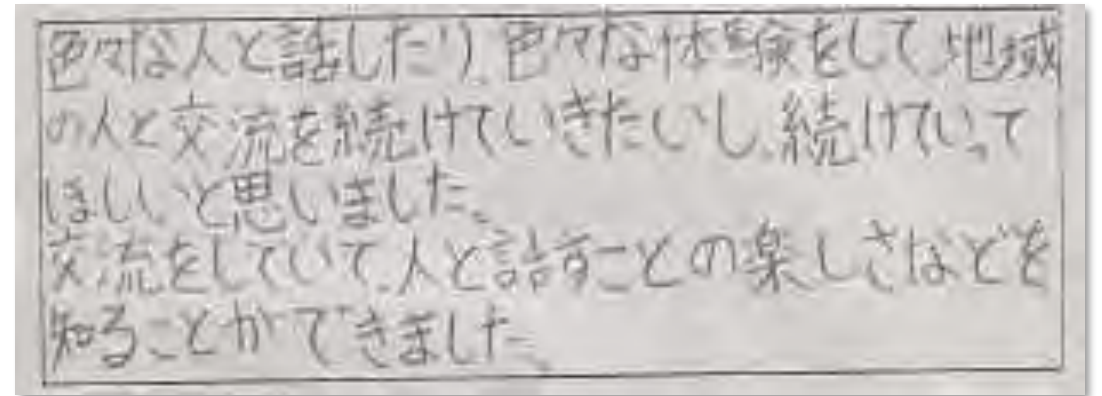 色々な人と話したり、色々な体験をして、地域
の人と交流を続けていきたいし、続けていって
ほしいと思いました。
交流をしていて、人と話すことの楽しさなどを
知ることができました。